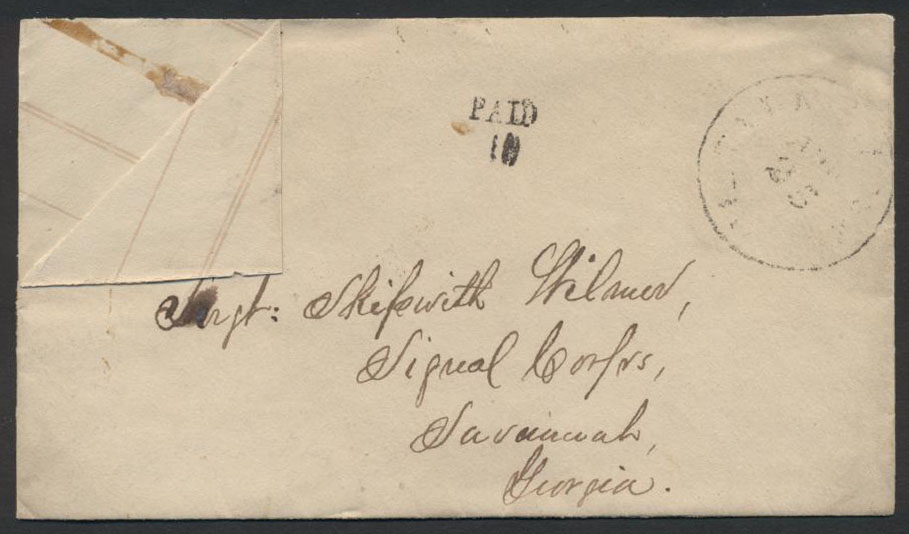 PAID
10
Sergt: Skipwith Wilmer,
Signal Corps,
Savannah,
Georgia.